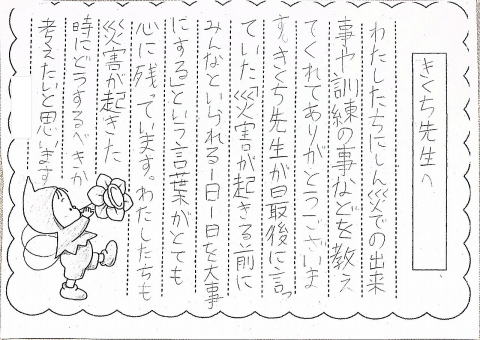 きくち先生へ
わたしたちにしん災での出来
事や訓練の事などを教え
てくれてありがとうございま
す。きくち先生が最後に言っ
ていた「災害が起きる前に
みんなといられる1日1日を大事
にする」という言葉がとても
心に残っています。わたしたちも
災害が起きた
時にどうするべきか
考えたいと思います